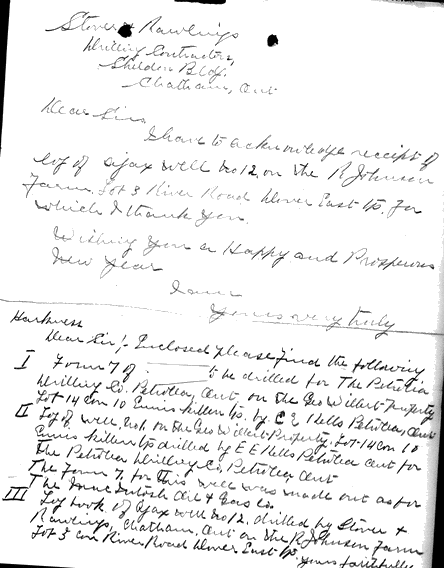 Stover & Rawlings
Drilling Contractors,
Sheldon Bldg.
Chatham, Ont
Dear Sirs
I have to acknowledge receipt of
log of Ajax well No 12, on the R Johnson
Farm, Lot 3 River Road Dover East Tp. for
which I thank you.
Wishing you a Happy and Prosperous
New Year
I am
Yours very truly
Harkness
Dear Sir;- Enclosed please find the following
I Form 7 of to be drilled for The Petrolia
Drilling Co. Petrolea, Ont on the Geo Willert Property
Lot 14 Con 10 Enniskillen Tp. by E E Kells Petrolea, Ont
II Log of well No 1. on the Geo Willert Property. Lot 14 Con 10
Enniskillen Tp drilled by E E Kells Petrolea Ont for
The Petrolea Drilling Co, Petrolea, Ont
The Form 7, for this well was made out as for
The Oil & Gas Co.
III Log book of Ajax well No 12. drilled by Stover &
Rawlings, Chatham, Ont on the R Johnson Farm
Lot 3 Con River Road Dover East Tp.
Yours faithfully